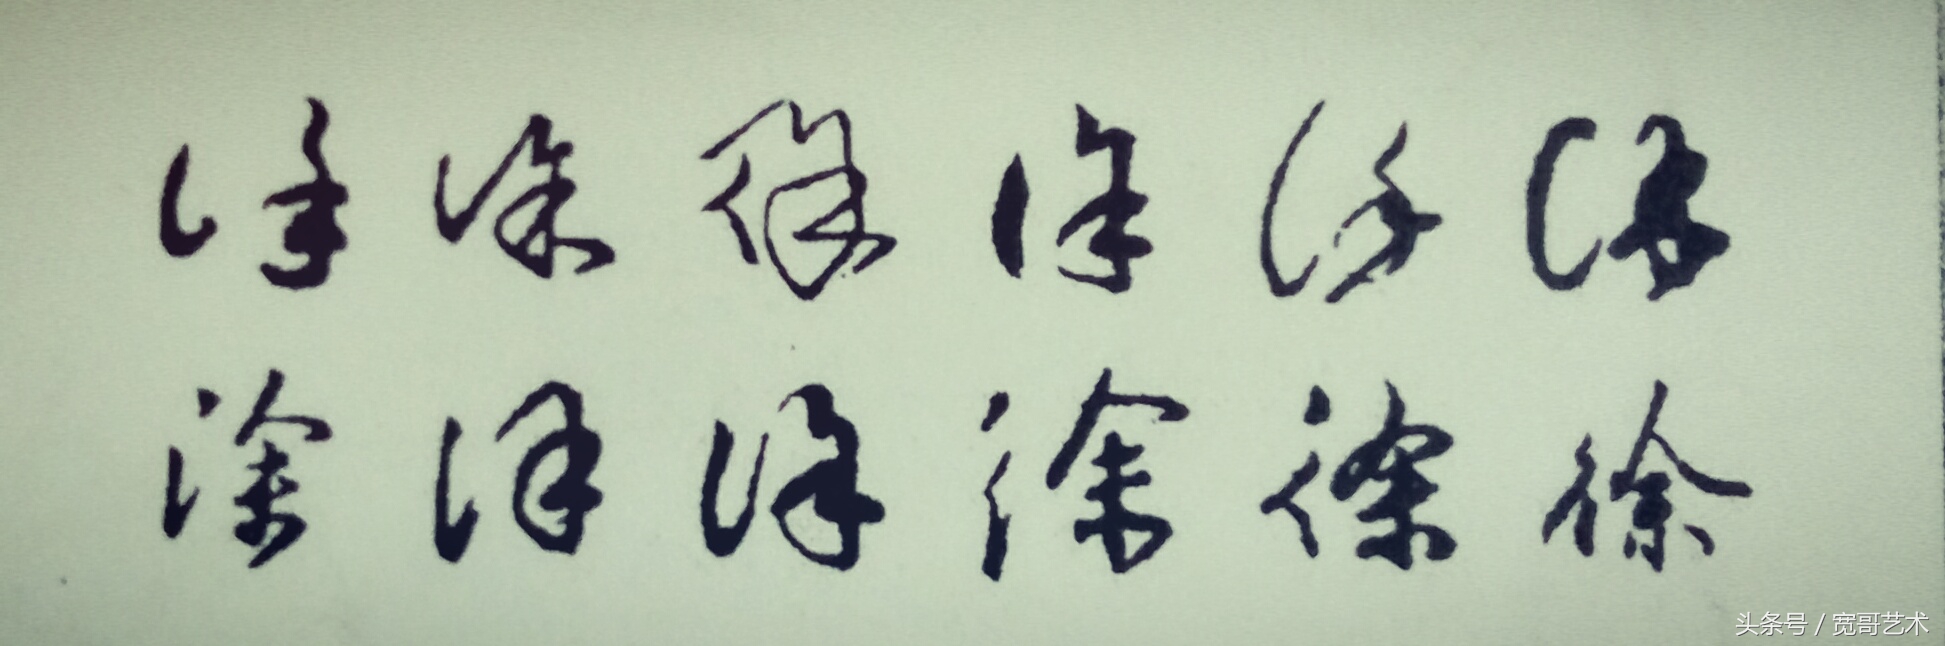 徐 徐 徐 徐 徐 徐
徐 徐 徐 徐 徐 徐
头条号 / 宽哥艺术